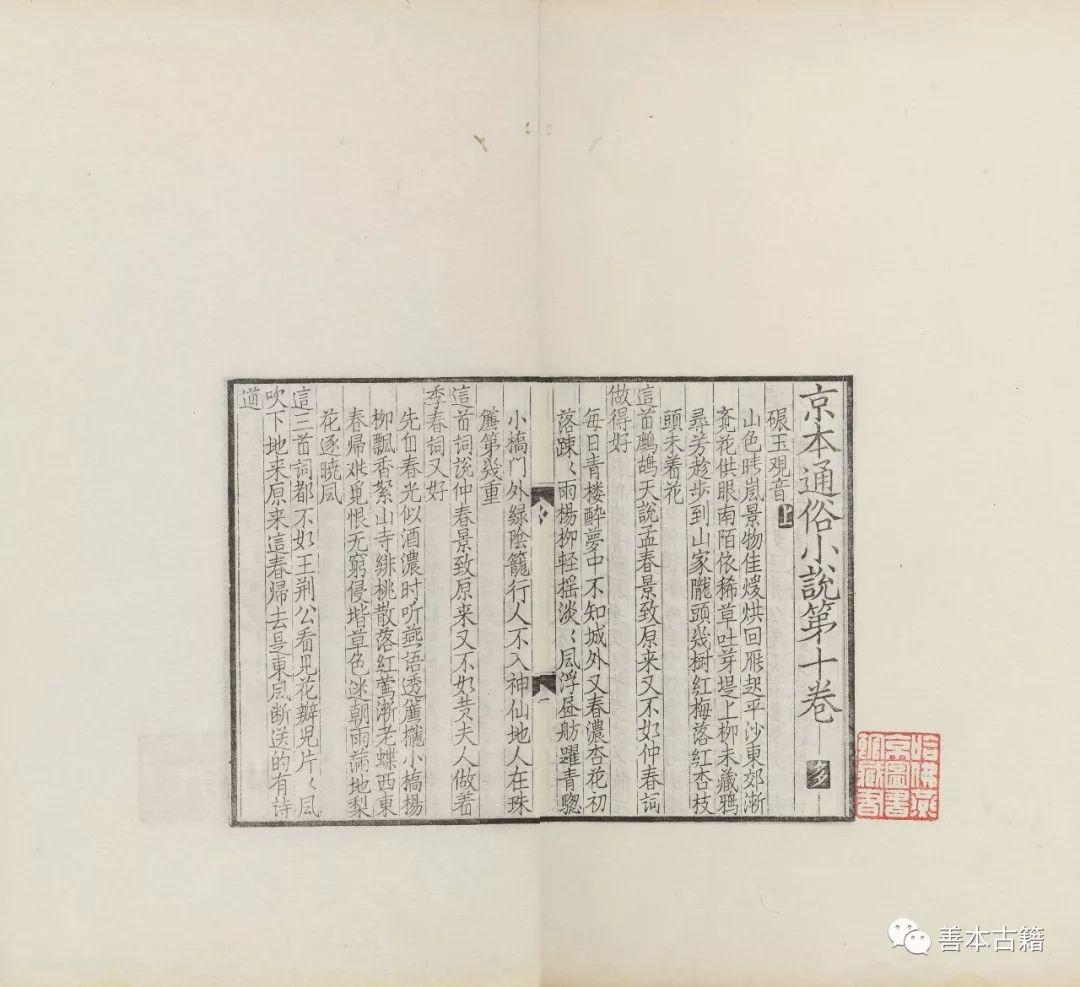 京本通俗小說第十卷 多
碾玉观音 上
山色晴嵐景物佳煖烘回雁起平沙東郊渐
觉花供眼南陌依稀草吐芽堤上柳未藏鸦
尋芳趂步到山家隴頭幾树红梅落红杏枝
頭未着花
這首鷓鸪天說孟春景致原来又不如仲春詞
做得好
每日青楼醉夢中不知城外又春濃杏花初
落踈〻雨楊柳轻摇淡〻凨浮画舫躍青騘
一
小橋門外緑陰籠行人不入神仙地人在珠
簾第幾重
這首词說仲春景致原来又不如黄夫人做着
季春词又好
先自春光似酒濃时听燕语透簾櫳小橋楊
柳飘香絮山寺緋桃散落红莺渐老蝶西東
春歸难覓恨无窮侵堦草色迷朝雨满地梨
花逐晓凨
這三首词都不如王荆公看見花瓣児片〻凨
吹下地来原来這春歸去是東凨断送的有诗
道
哈佛燕
京圖書
館藏書
善本古籍